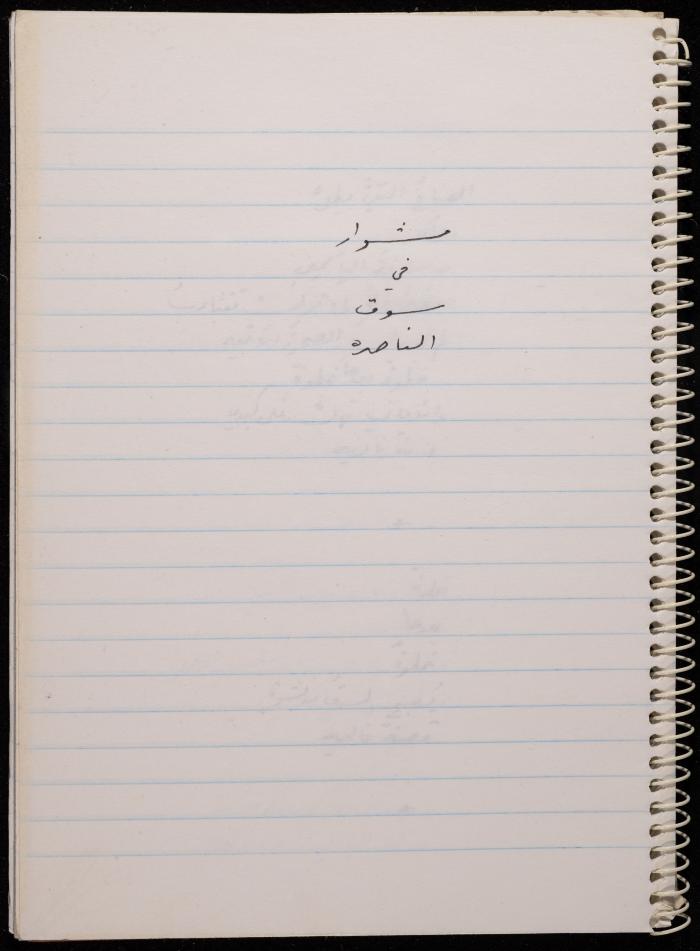 مشوار
في
سوق
الناصره